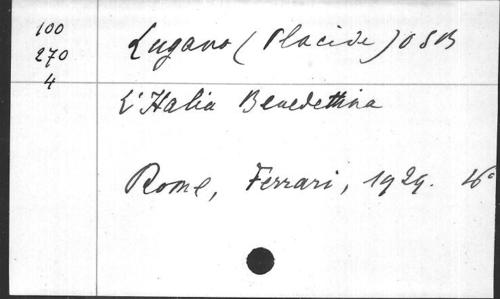 100
270
4
Lugano (Placide) OSB
L'Italia Benedettina
Rome, Ferrari, 1929. 16°